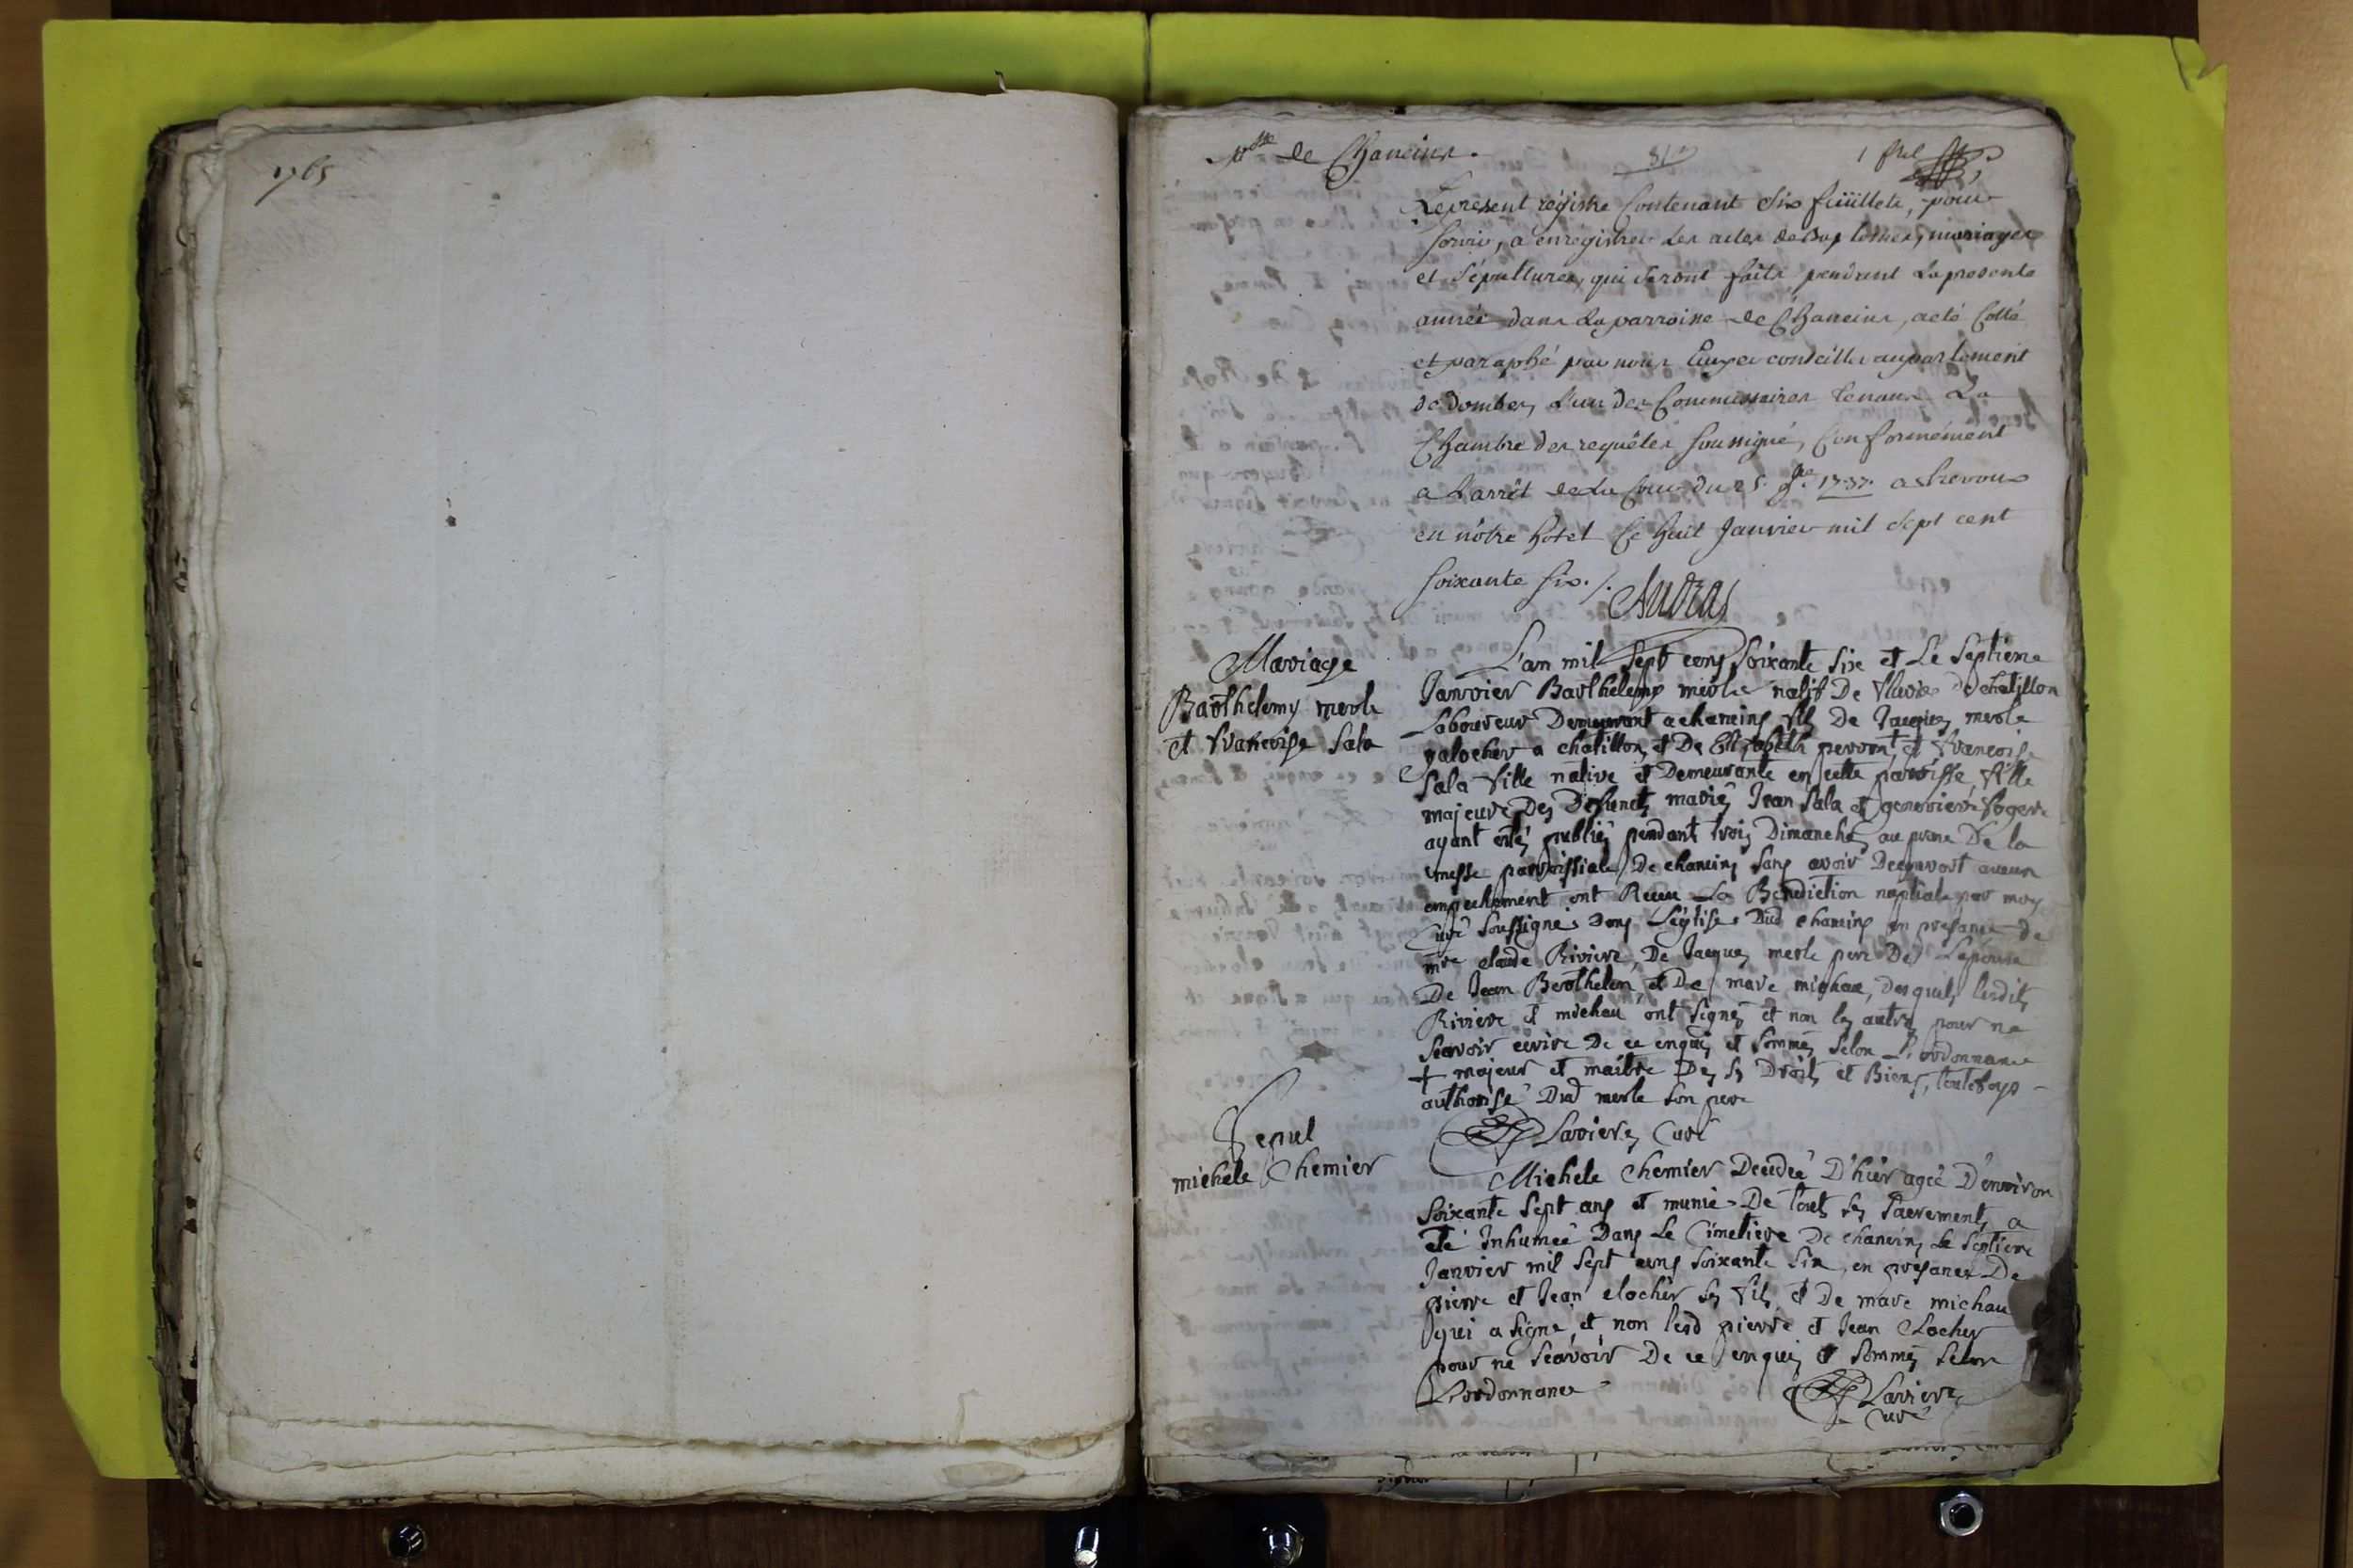 1765
de Chaneins.
1 fllet
Le present régistre Contenant Six feüillets, pour
servir, a enregistrer Les actes de Baptesmes, mariages
et Sépultures, qui seront faits pendant La presente
année dans La parroisse de Chaneins, a eté Cotté
et paraphé par nous conseiller au parlement
de dombes, L'un des Commissaires tenans La
Chambre des requêtes soussigné, Conformément
a L'arrêt de La Cour du 25. 9bre 1737. a trevoux
en nôtre hotel Ce huit Janvier mil Sept cent
soixante Six ./.
Audras
Mariage
Barthelemy merle
et francoise Sala
L'an mil Sept cens Soixante Six et Le Septieme
Janvier Barthelemy merle natif De de chatillon
Laboureur Demeurant a chaneins fils De Jacques merle
galocher a chatillon, et De Elizabeth perront, et francoise
Sala fille native et Demeurante en cette paroisse, fille
majeure Des Defuncts mariés Jean Sala et genevieve
ayant estés publiés pendant trois Dimanches au prone De la
messe parroissiale De chaneins sans avoir Decouvert aucun
empechement ont Receu La Benediction nuptiale par moy
Curé Soussigné Dans L'église Dud chaneins en presance de
mre claude Riviere, De Jacques merle pere De Lepoux
De Jean Berthelon, et De marc michau, Desquels lesdits
Riviere et michau ont signés et non les autres pour ne
Scavoir ecrire De ce enquis et sommés selon L'ordonnance
+ majeur et maitre De ses Droits et Biens, toutefoys
authorisé Dud merle son pere
Lavieres Curé
Sepul
michele Chemier
Michele Chemier Decedée D'hier agée D'environ
Soixante Sept ans et munie De touts ses Sacrements a
eté Inhumée Dans Le Cimetiere De chaneins Le Septieme
Janvier mil Sept cens Soixante Six, en presance De
pierre et Jean clocher ses fils, et De marc michau
qui a signé, et non lesd pierre et Jean Clocher
pour ne Scavoir De ce enquis et sommés selon
L'ordonnance
Lavieres
Curé